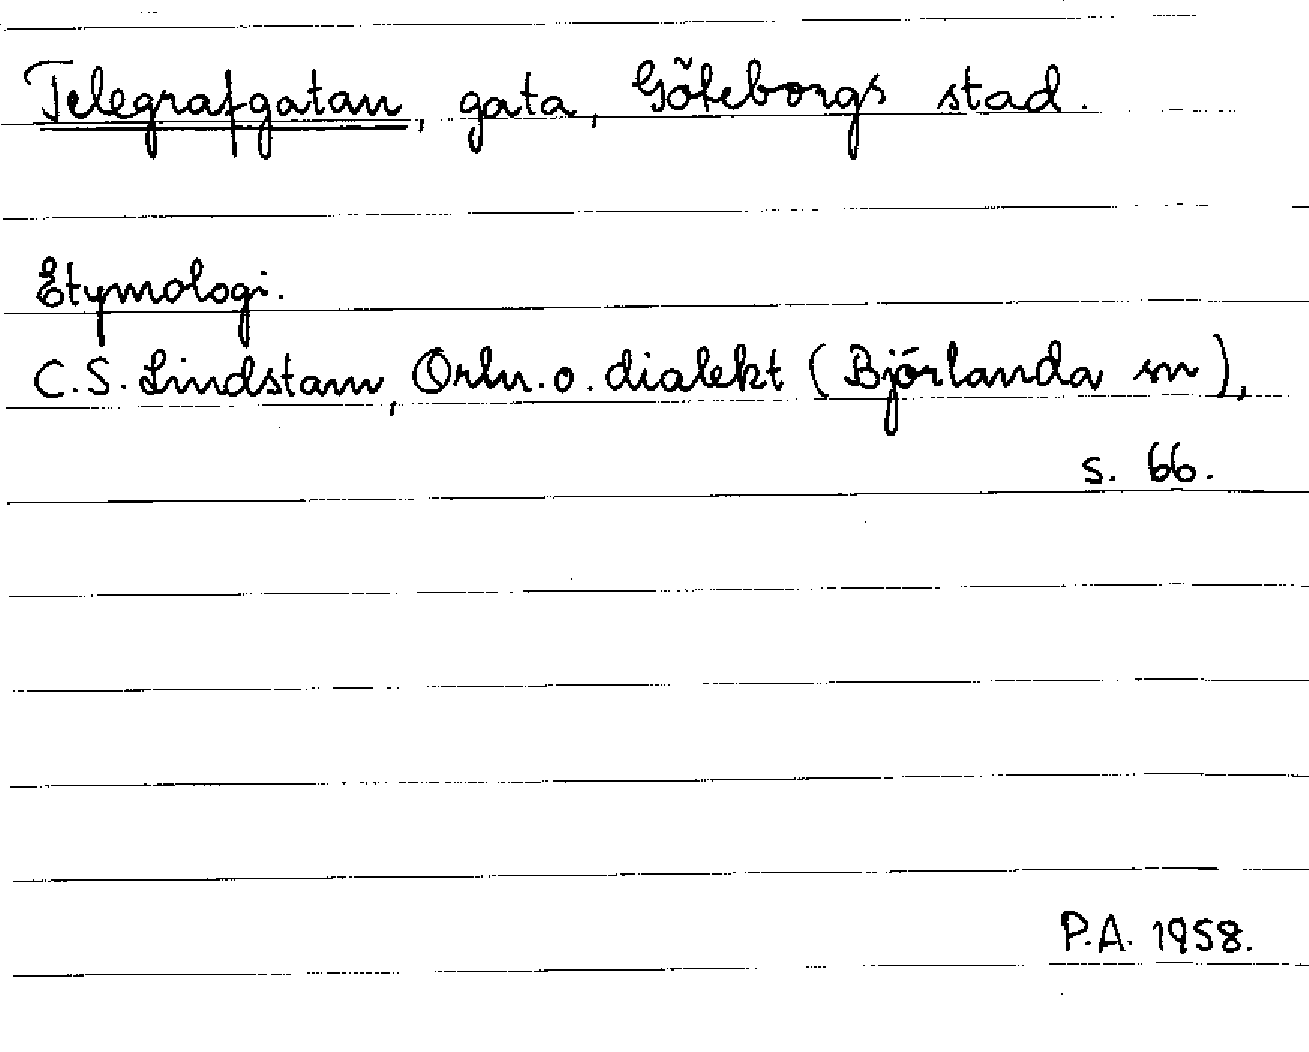 Telegrafgatan, gata, Göteborgs stad.
Etymologi.
C.S. Lindstam, Ortn. o. dialekt (Björlanda sn),
s. 66.
P.A. 1958.